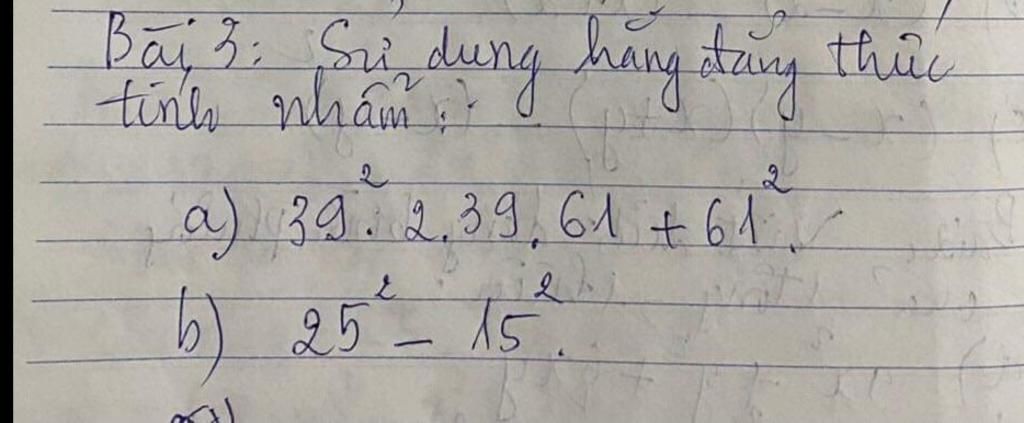 Bài 3: Sử dụng hằng đẳng thức
tính nhẩm:
a) 39². 2.39.61 + 61².
b) 25² - 15².